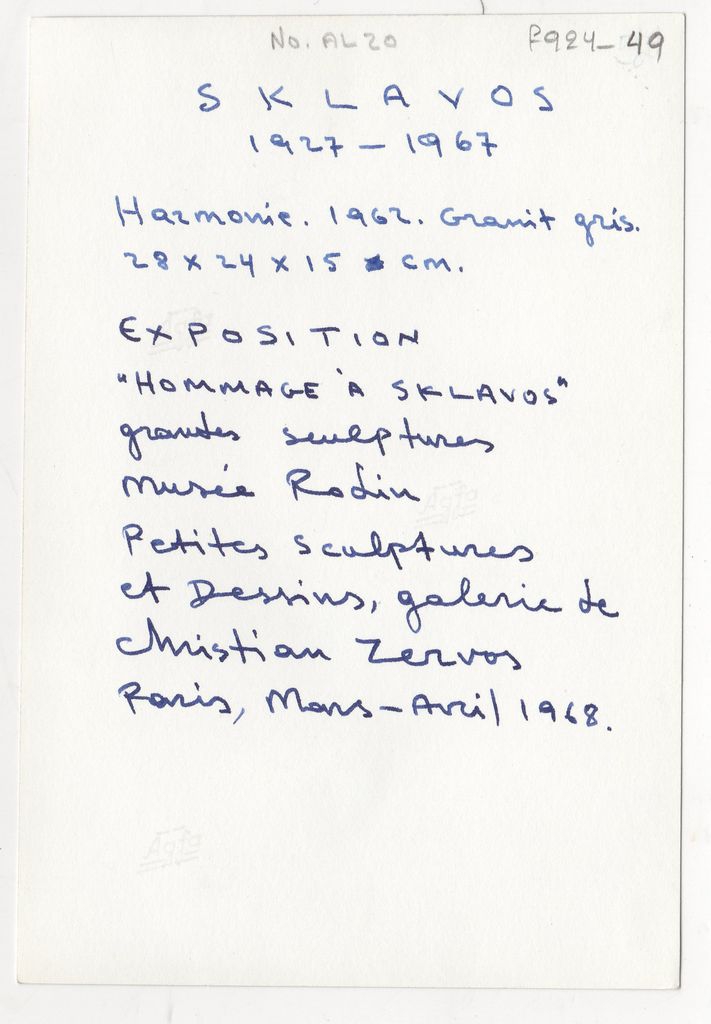 No. AL20 F924-49
SKLAVOS
1927-1967
Harmonie. 1962. Granit gris.
28 x 24 x 15 cm.
EXPOSITION
"HOMMAGE À SKLAVOS"
grandes sculptures
Musée Rodin
Petites sculptures
et Dessins, galerie de
Christian Zervos
Paris, Mars-Avril 1968.
Agfa
Agfa
Agfa